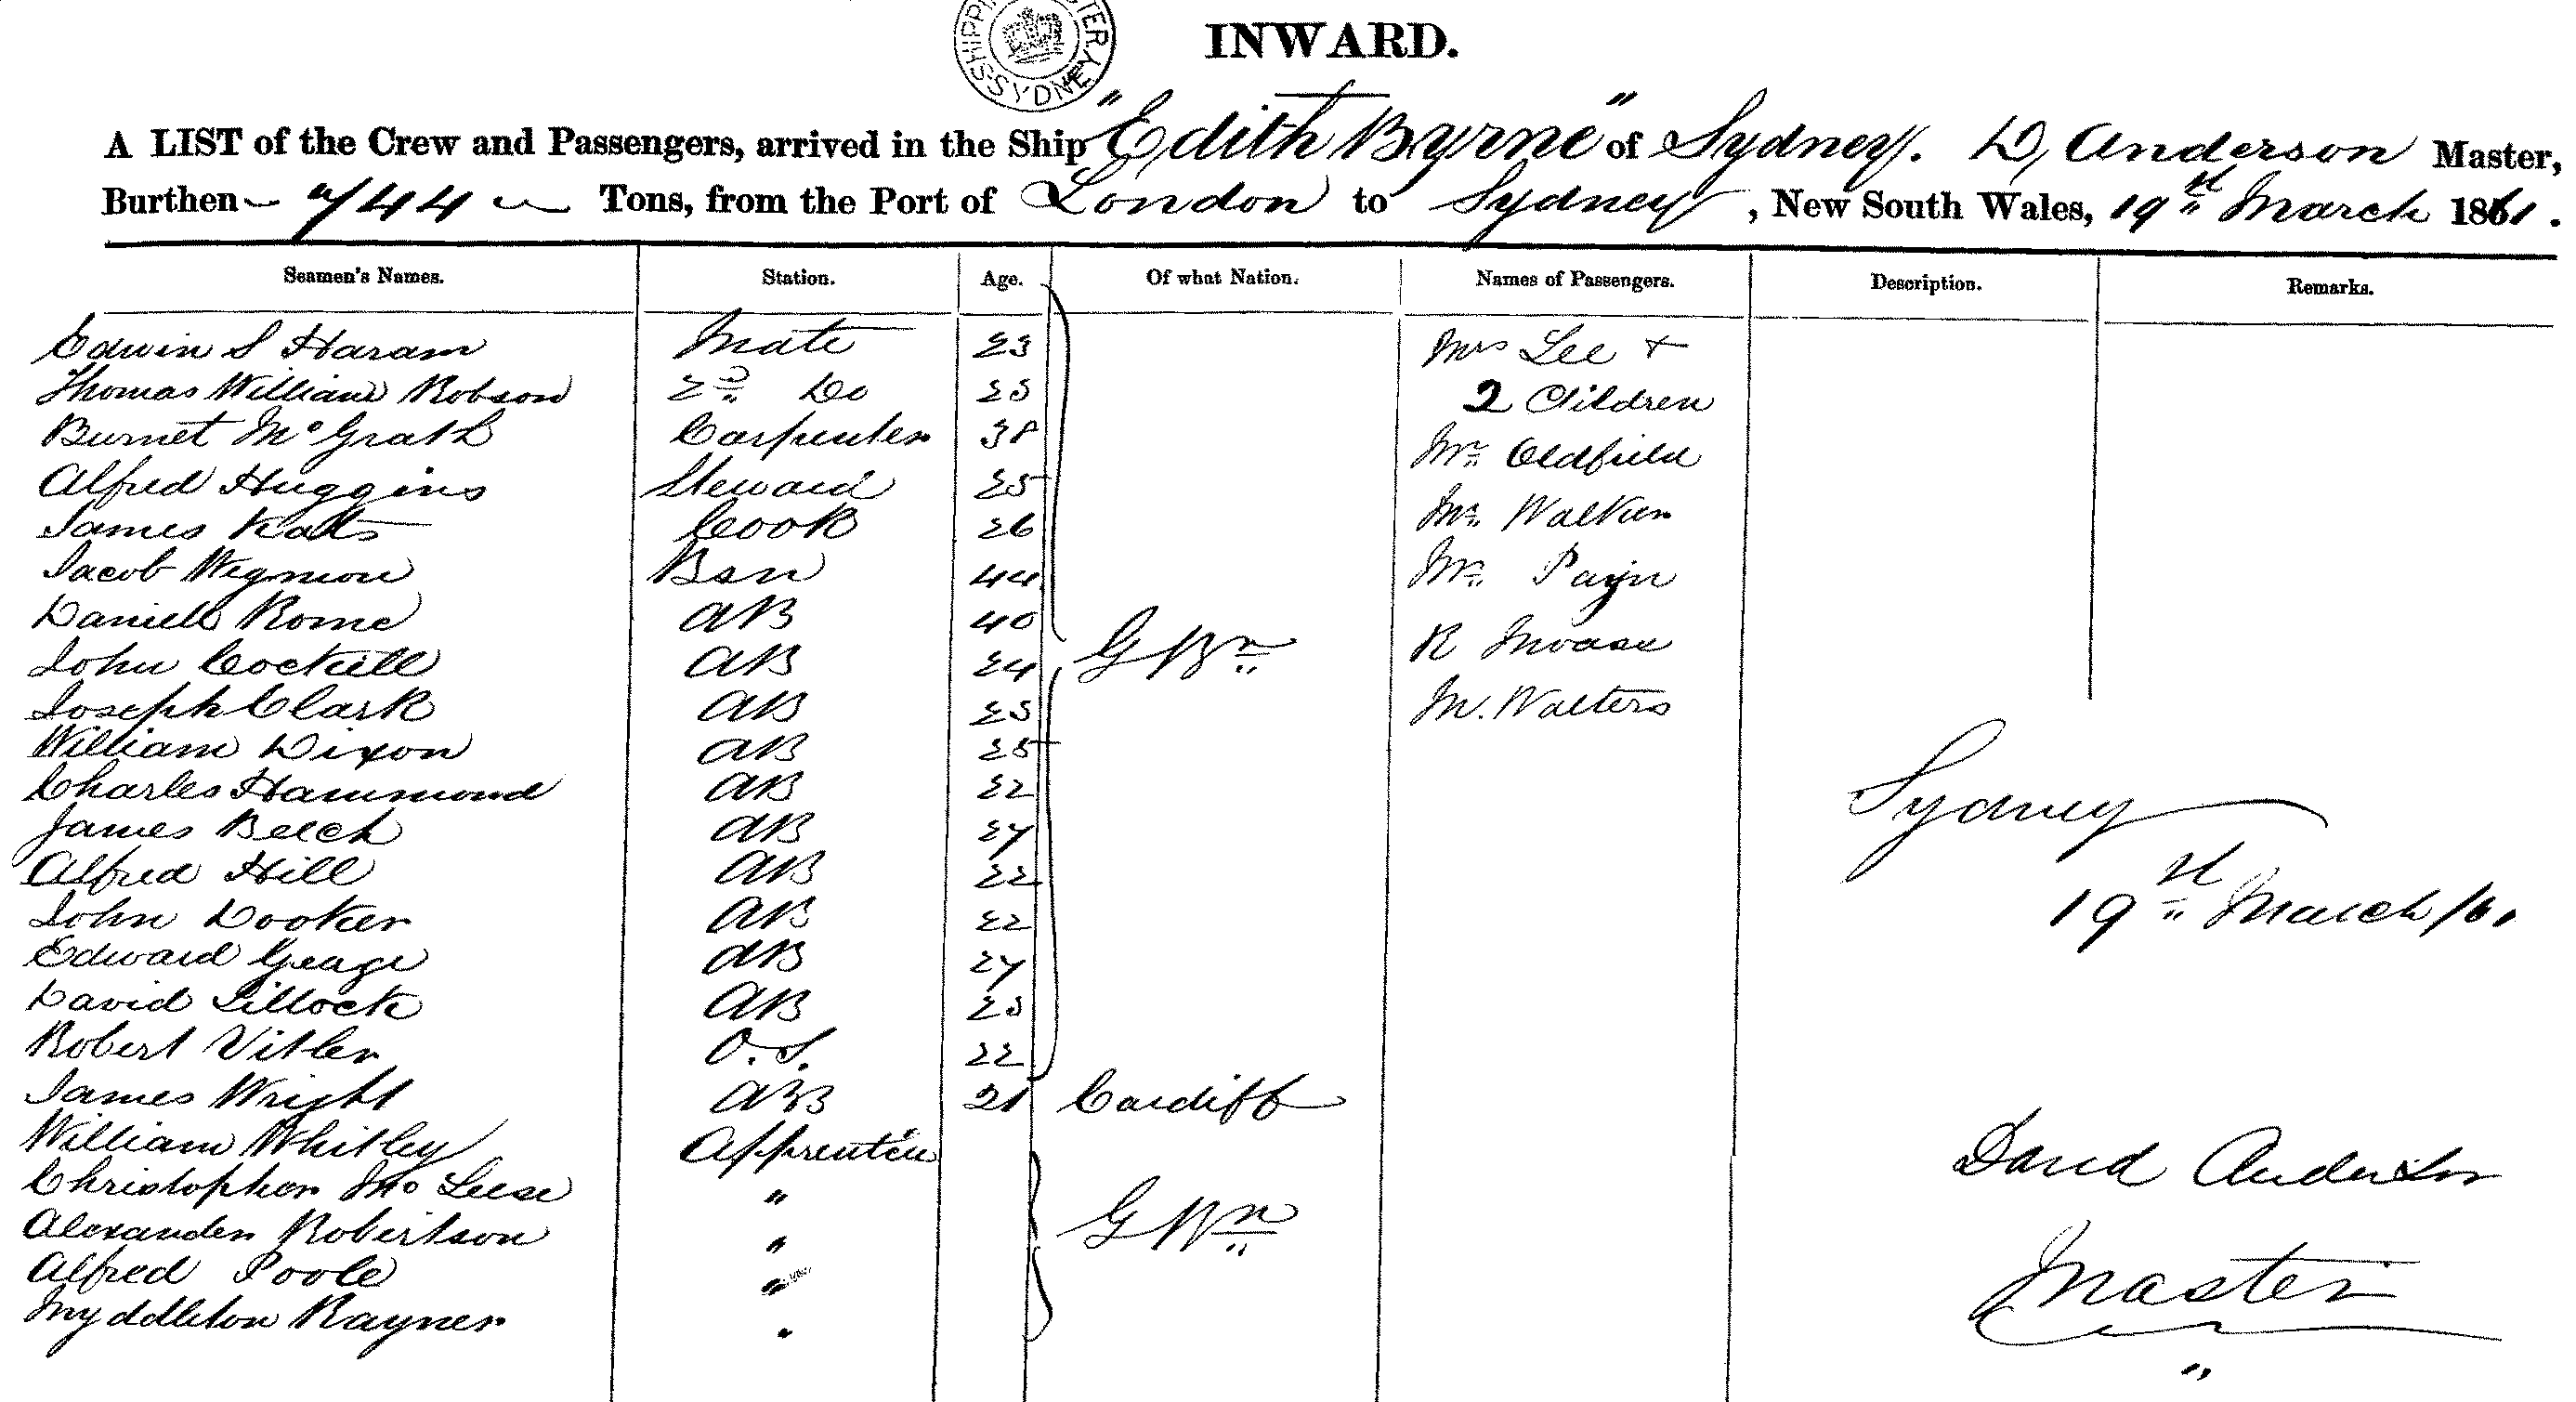 SHIPPING MASTER SYDNEY
INWARD.
A LIST of the Crew and Passengers, arrived in the Ship "Edith Byrne" of Sydney. D, Anderson Master,
Burthen 744 Tons, from the Port of London to Sydney, New South Wales, 19th March 1861.
Seamen's Names. Station. Age. Of what Nation. Names of Passengers. Description. Remarks.
Edwin S Haram Mate 23 Mrs Lee +
Thomas William Robson 2nd Do 25 2 Children
Burnet McGrath Carpenter 38 Mr Oldfield
Alfred Huggins Steward 25
James Kats Cook 26 Mr Walker
Jacob Wegmon Bsn 44 Mr Payn
Daniell Rome AB 40
John Cockell AB 24 G Bn R Moase
Joseph Clark AB 25 M. Walters
William Dixon AB 25
Charles Hammond AB 22 Sydney
James Beech AB 27
Alfred Hill AB 22
John Dooker AB 22 19th March /61
Edward Geage AB 27
David Lillock AB 23
Robert Vitler O.S. 22
James Wright AB 21 Cardiff
William Whitley Apprentice David Anderson
Christopher McLeese "
Alexander Robertson " G Bn
Alfred Poole " Master
Myddleton Rayner "